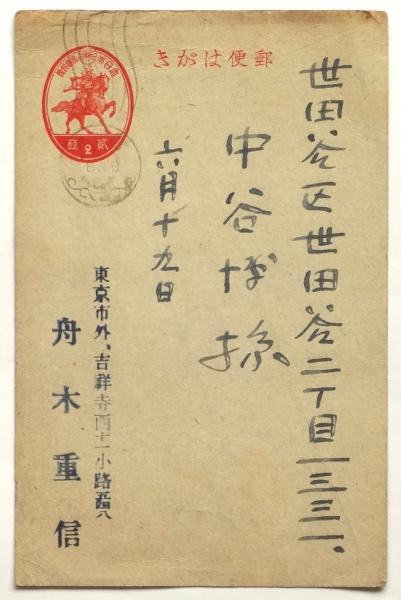 郵便はがき
世田谷区世田谷二丁目一三三一、
中谷博様
六月十九日
東京市外、吉祥寺西十一小路
舟木重信
貳2錢